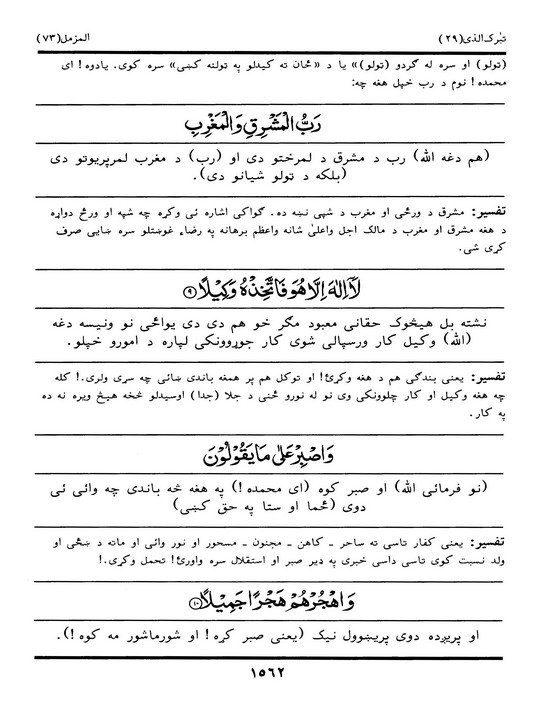 تبٰرك الذى (٢٩) المزمل (٧٣)
(تولو) او سره له گردو (تولو)» يا د « ځان ته كيدلو په توله كښى» سره كوى. يادوه! اى
محمده! نوم د رب خپل هغه چه:
رَبُّ الْمَشْرِقِ وَالْمَغْرِبِ
(هم دغه الله) رب د مشرق د لمرختو دى او (رب) د مغرب لمرپريوتو دى
(بلكه د ټولو شيانو دى).
تفسير: مشرق د ورځى او مغرب د شپى نښه ده. گواكى اشاره ئى وكړه چه شپه او ورځ دواړه
د هغه مشرق او مغرب د مالك اجل واعلىٰ شانه واعظم برهانه په رضاء غوښتلو سره ښايى صرف
كړى شى.
لَآ اِلٰهَ اِلَّا هُوَ فَاتَّخِذْهُ وَكِيْلًا ۹
نشته بل هيڅوك حقانى معبود مگر خو هم دى دى يوائى نو ونيسه دغه
(الله) وكيل كار ورسپالى شوى كار جوړوونكى لپاره د امورو خپلو.
تفسير: يعنى بندگى هم د هغه وكړئ! او توكل هم پر همغه باندى ښائى چه سړى ولرى.! كله
چه هغه وكيل او كار چلوونكى وى نو له نورو ځنى د جلا (جدا) اوسيدلو څخه هيڅ ويره نه ده
په كار.
وَاصْبِرْ عَلٰى مَا يَقُوْلُوْنَ
(نو فرمائى الله) او صبر كوه (اى محمده!) په هغه څه باندى چه وائى ئى
دوى (ځما او ستا په حق كښى)
تفسير: يعنى كفار تاسى ته ساحر ـ كاهن ـ مجنون ـ مسحور او نور وائى او ماته د ښځى او
ولد نسبت كوى تاسى داسى خبرى په ډير صبر او استقلال سره واورئ! تحمل وكړى.!
وَاهْجُرْهُمْ هَجْرًا جَمِيْلًا ۱۰
او پريږده دوى پريښوول نيك (يعنى صبر كړه! او شورماشور مه كوه!).
١٥٦٢